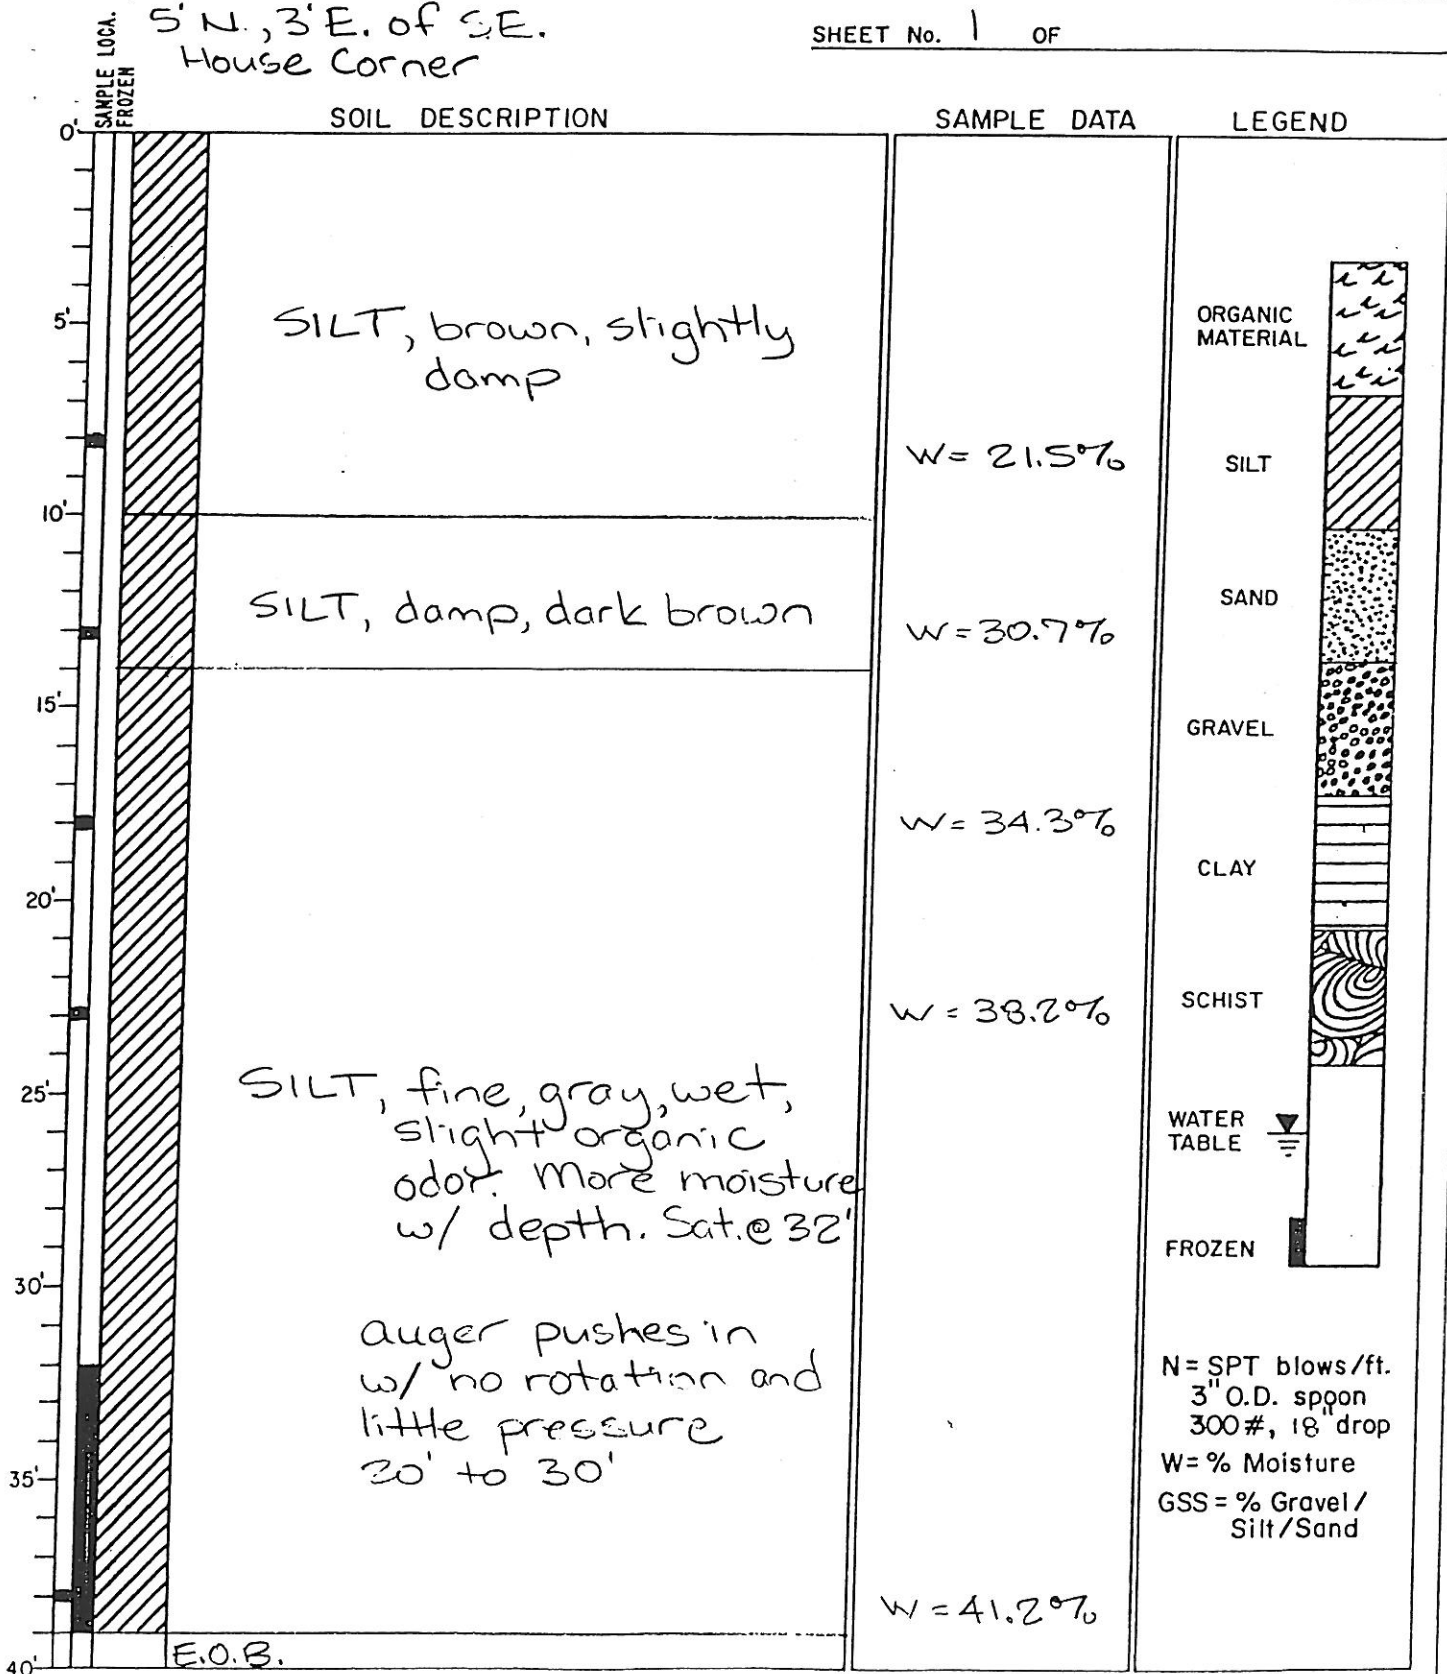 5' N., 3' E. of S.E.
House Corner
SHEET No. 1 OF
SAMPLE LOCA.
FROZEN
SOIL DESCRIPTION
SAMPLE DATA
LEGEND
0'
5'
10'
15'
20'
25'
30'
35'
40'
SILT, brown, slightly
damp
W= 21.5%
SILT, damp, dark brown
W=30.7%
W= 34.3%
W = 38.2%
SILT, fine, gray, wet,
slight organic
odor. More moisture
w/ depth. Sat.@ 32'
auger pushes in
w/ no rotation and
little pressure
20' to 30'
W = 41.2%
E.O.B.
ORGANIC
MATERIAL
SILT
SAND
GRAVEL
CLAY
SCHIST
WATER
TABLE
FROZEN
N = SPT blows/ft.
3" O.D. spoon
300#, 18" drop
W= % Moisture
GSS = % Gravel/
Silt/Sand